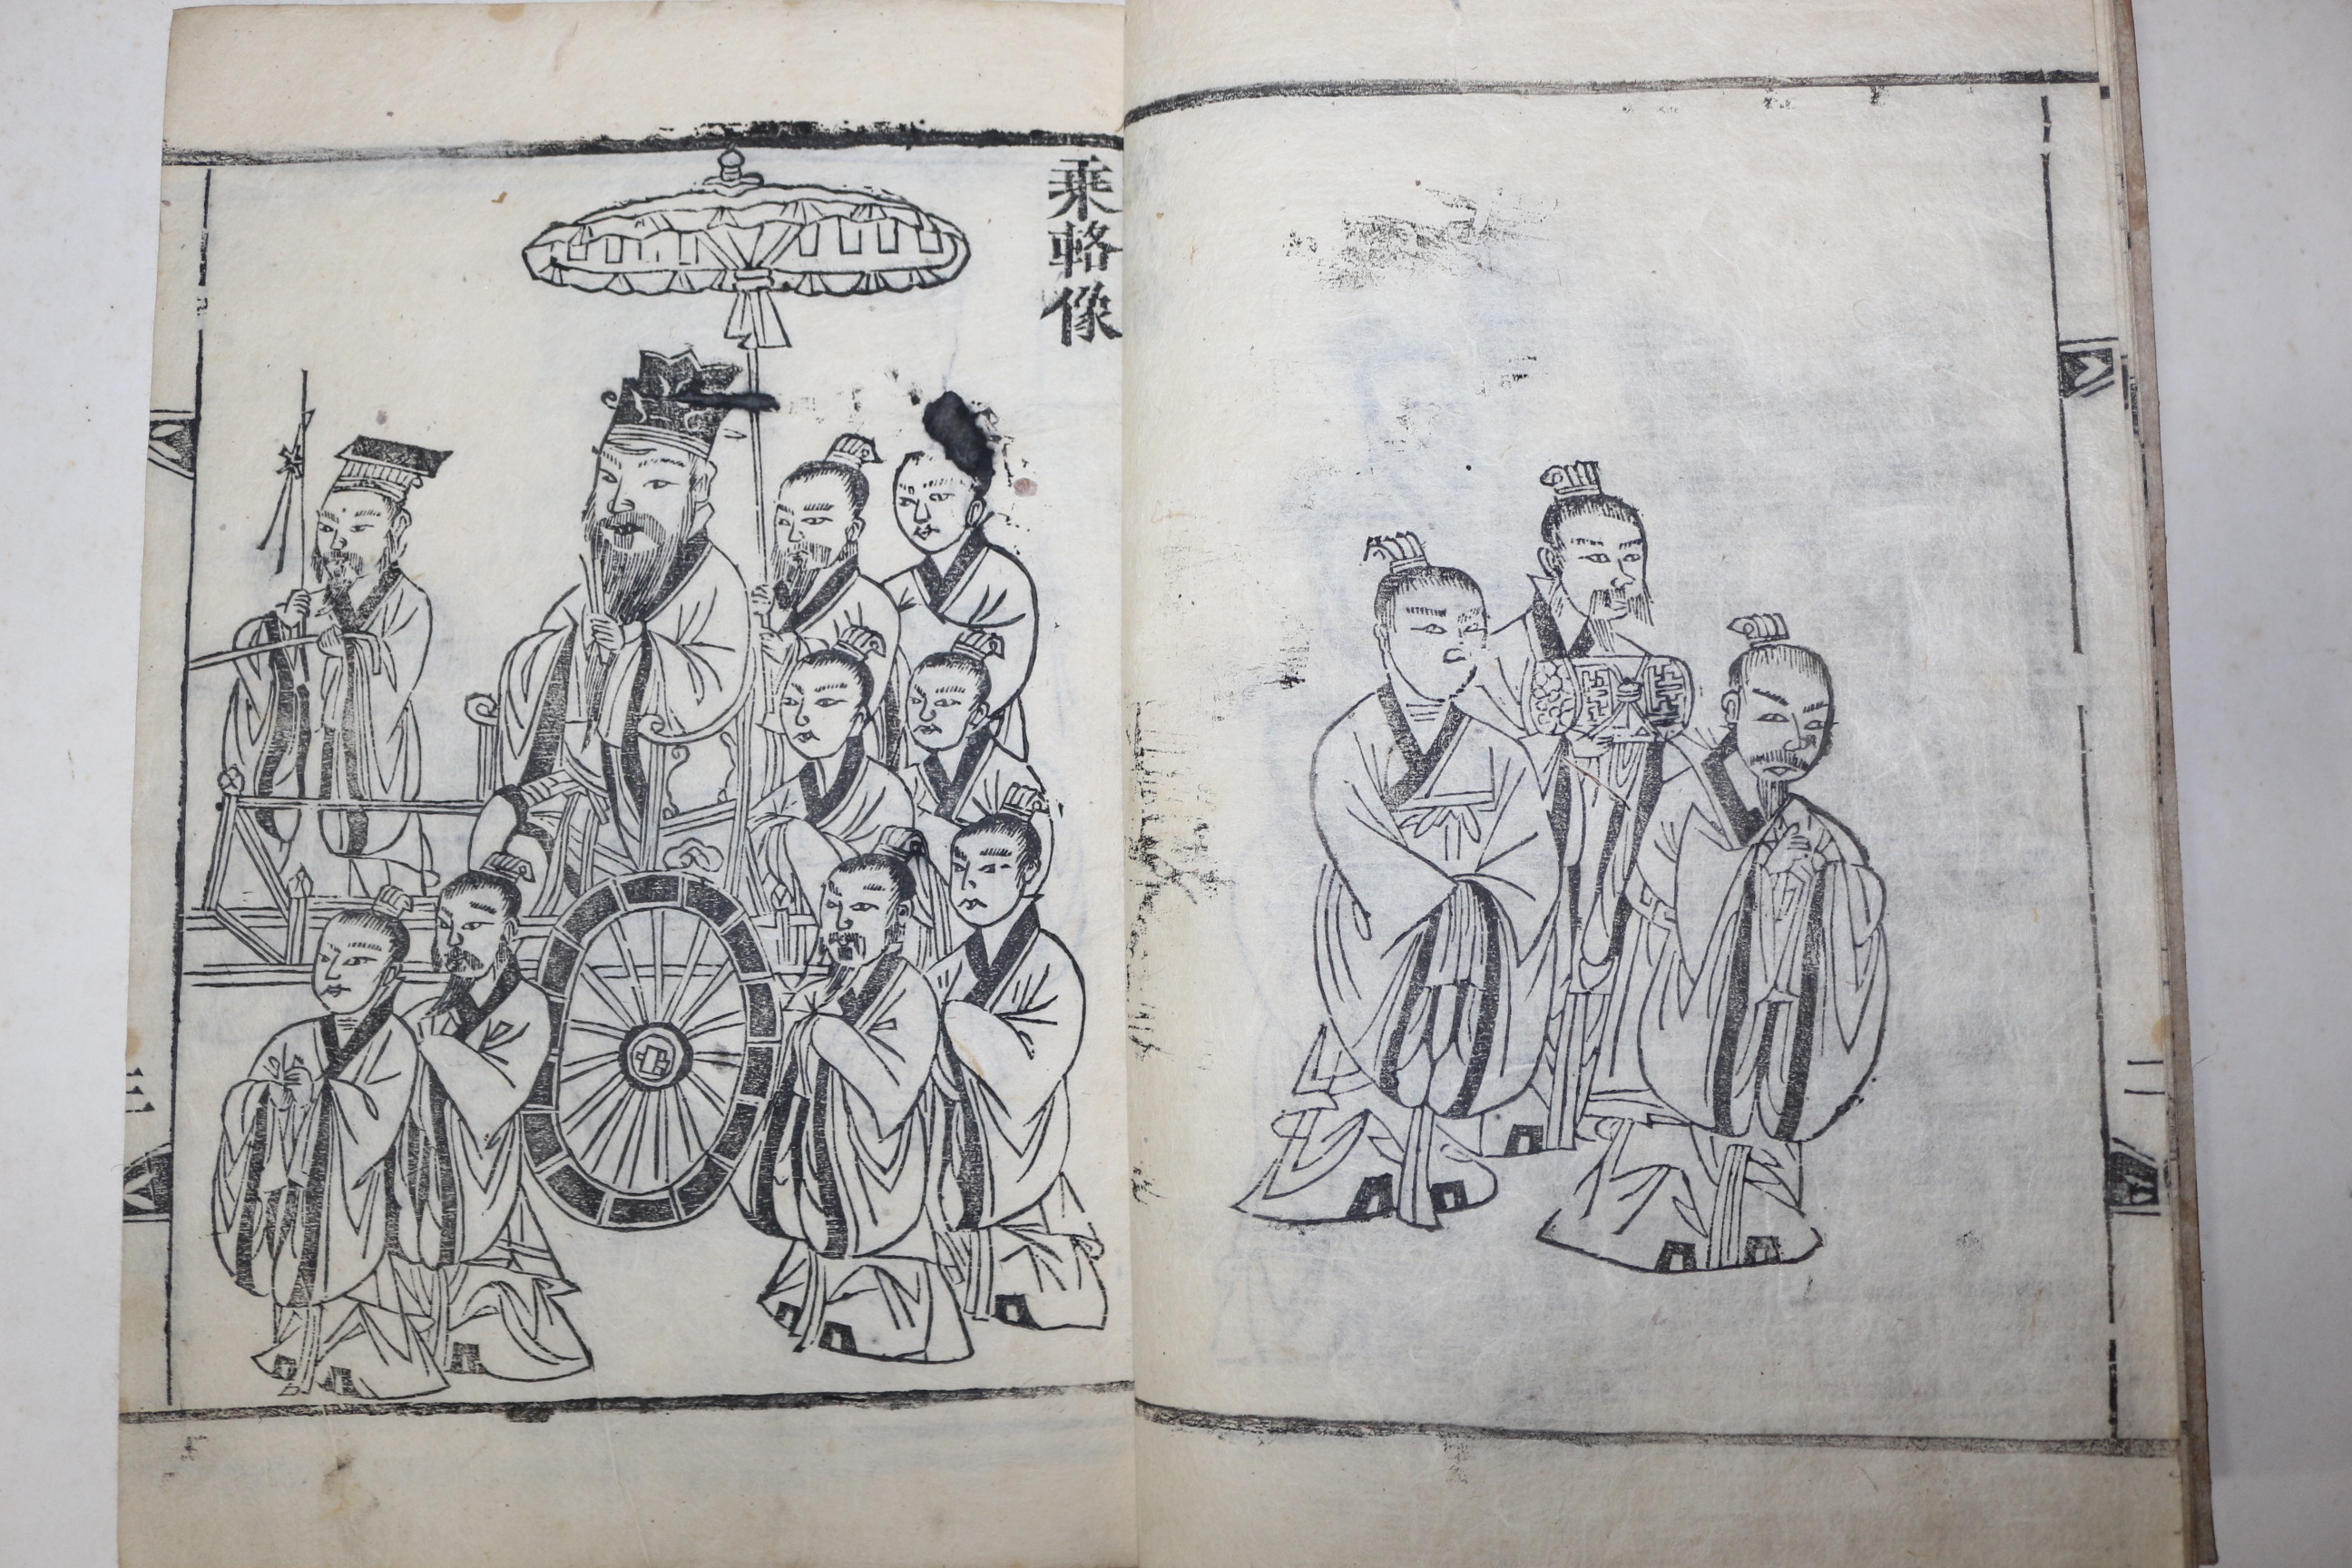 乘輅像
二
三